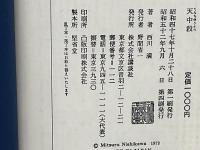 天中殺
昭和四十七年十月二十八日 第一刷発行
昭和五十二年九月六日 第四刷発行
定価一〇〇〇円
著者 西川満
発行者 野間省一
発行所 株式会社講談社
東京都文京区音羽二―
郵便番号一一二
電話東京
(大代表)
振替 東京三九三〇
印刷所 凸版印刷株式会社
製本所 堅省堂
© Mitsuru Nishikawa 1972